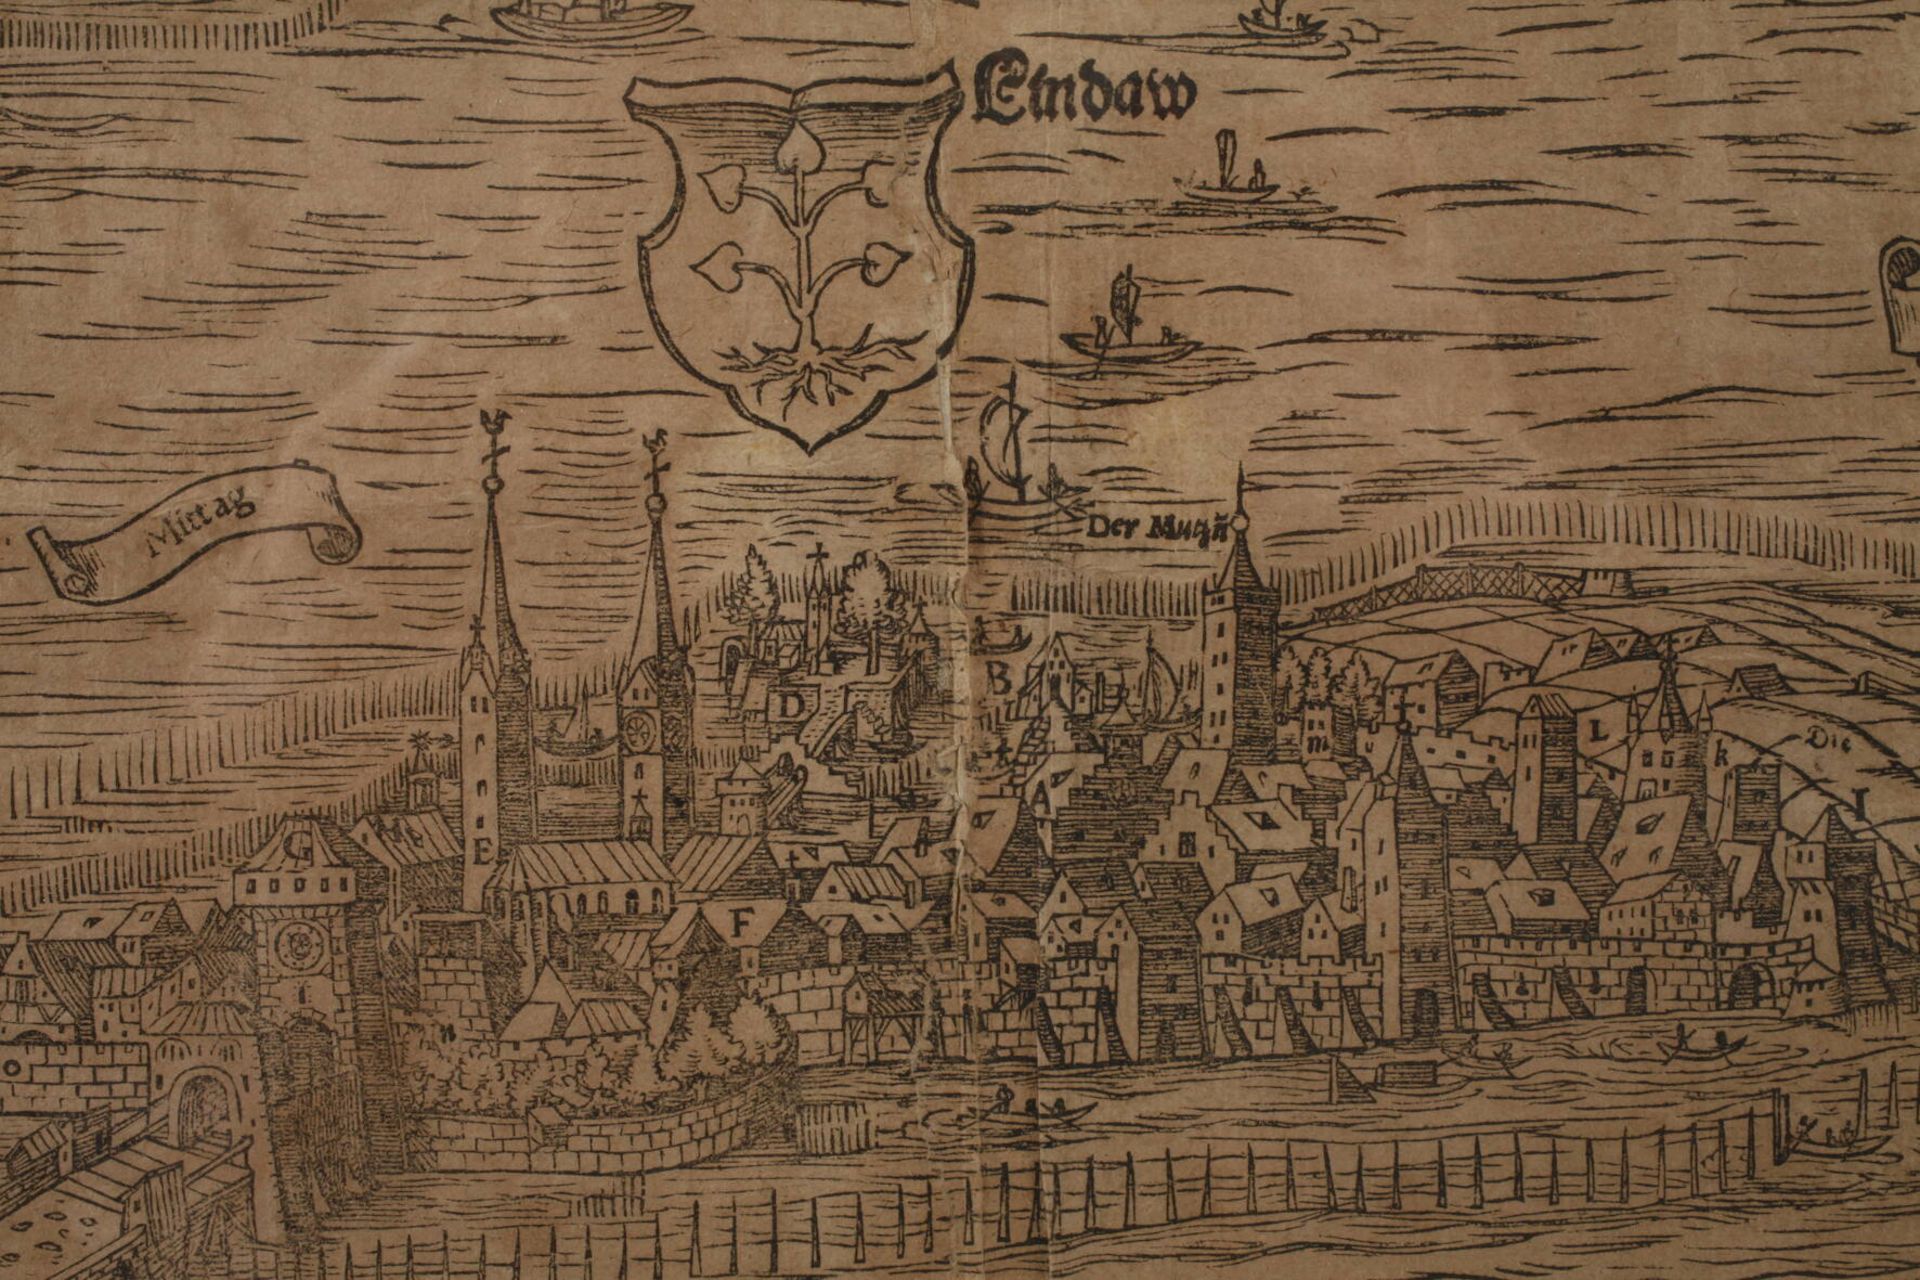 Lindaw
Mittag
Der Mutzñ
D
B
m
L
Die
k
A
I
E
F
n
O